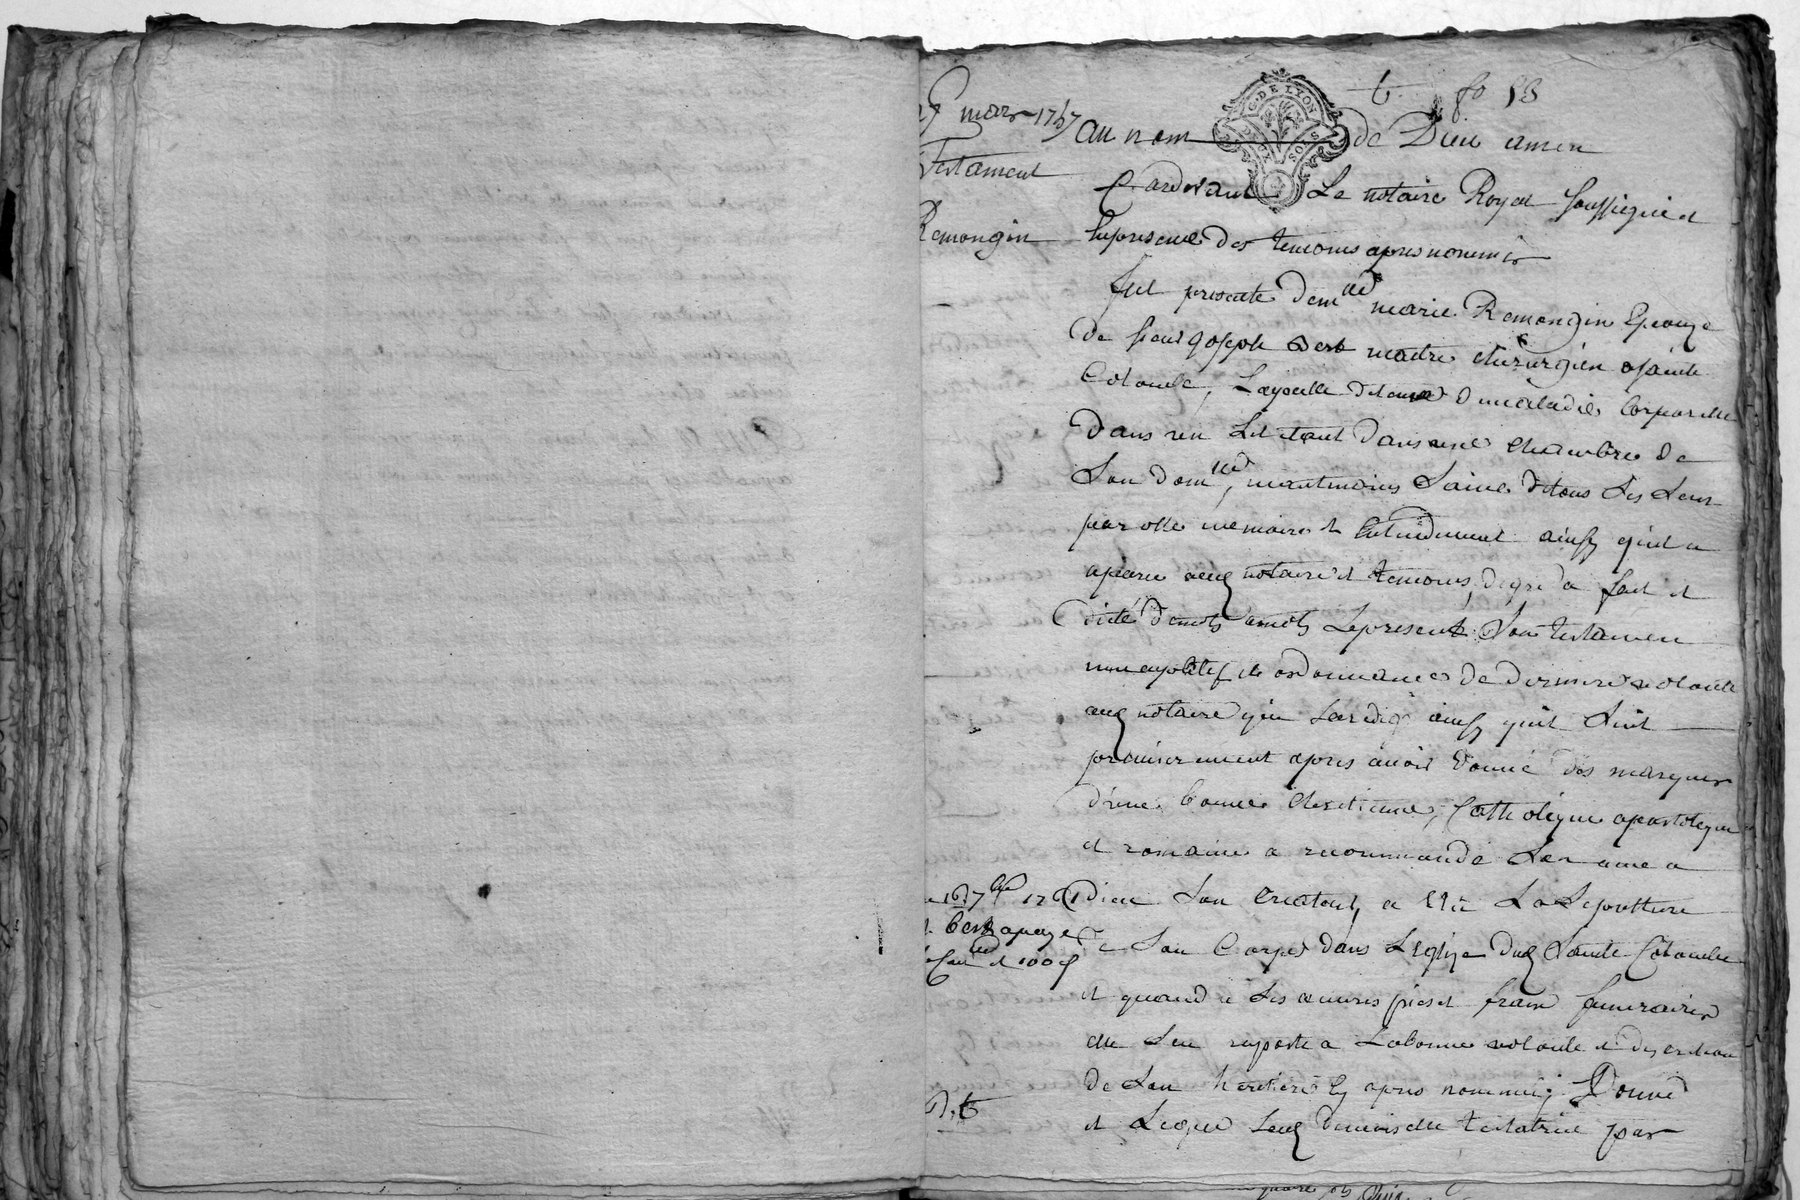 fo 53
mars 1767
Testament
Remongin
au nom de Dieu amen
Pardevant Le notaire Royal soussigné et
En presence des temoins apres nommés
fut presente Demlle marie Remongin Epouze
de sieur joseph maitre chirurgien a sainte
Colombe, Laquelle detenue de maladie corporelle
dans un Lit etant dans une chambre de
Son Domlle, neantmoins Saine de tous Ses Sens
parolle memoire et Entendement ainsy quil a
aparu auq notaire et temoins, de gré a fait et
dicté de mots a mots Le present Son testament
nuncupatif et ordonnance de derniere volonté
auq notaire qui La redigé ainsy quil Suit
premierement apres avoir donné des marques
d'une bonne chretienne, Catholique apostolique
et romaine a recommandé Son ame a
Dieu Son Createur, a Elu La Sepulture
de Son Corps dans L'eglize dud Sainte Colombe
et quand a Ses œuvres pies et frais funeraires
elle S'en raporte a La bonne volonté et discretion
de Son heritier Cy apres nommé; Donne
et Legue Lad demoiselle testatrice par